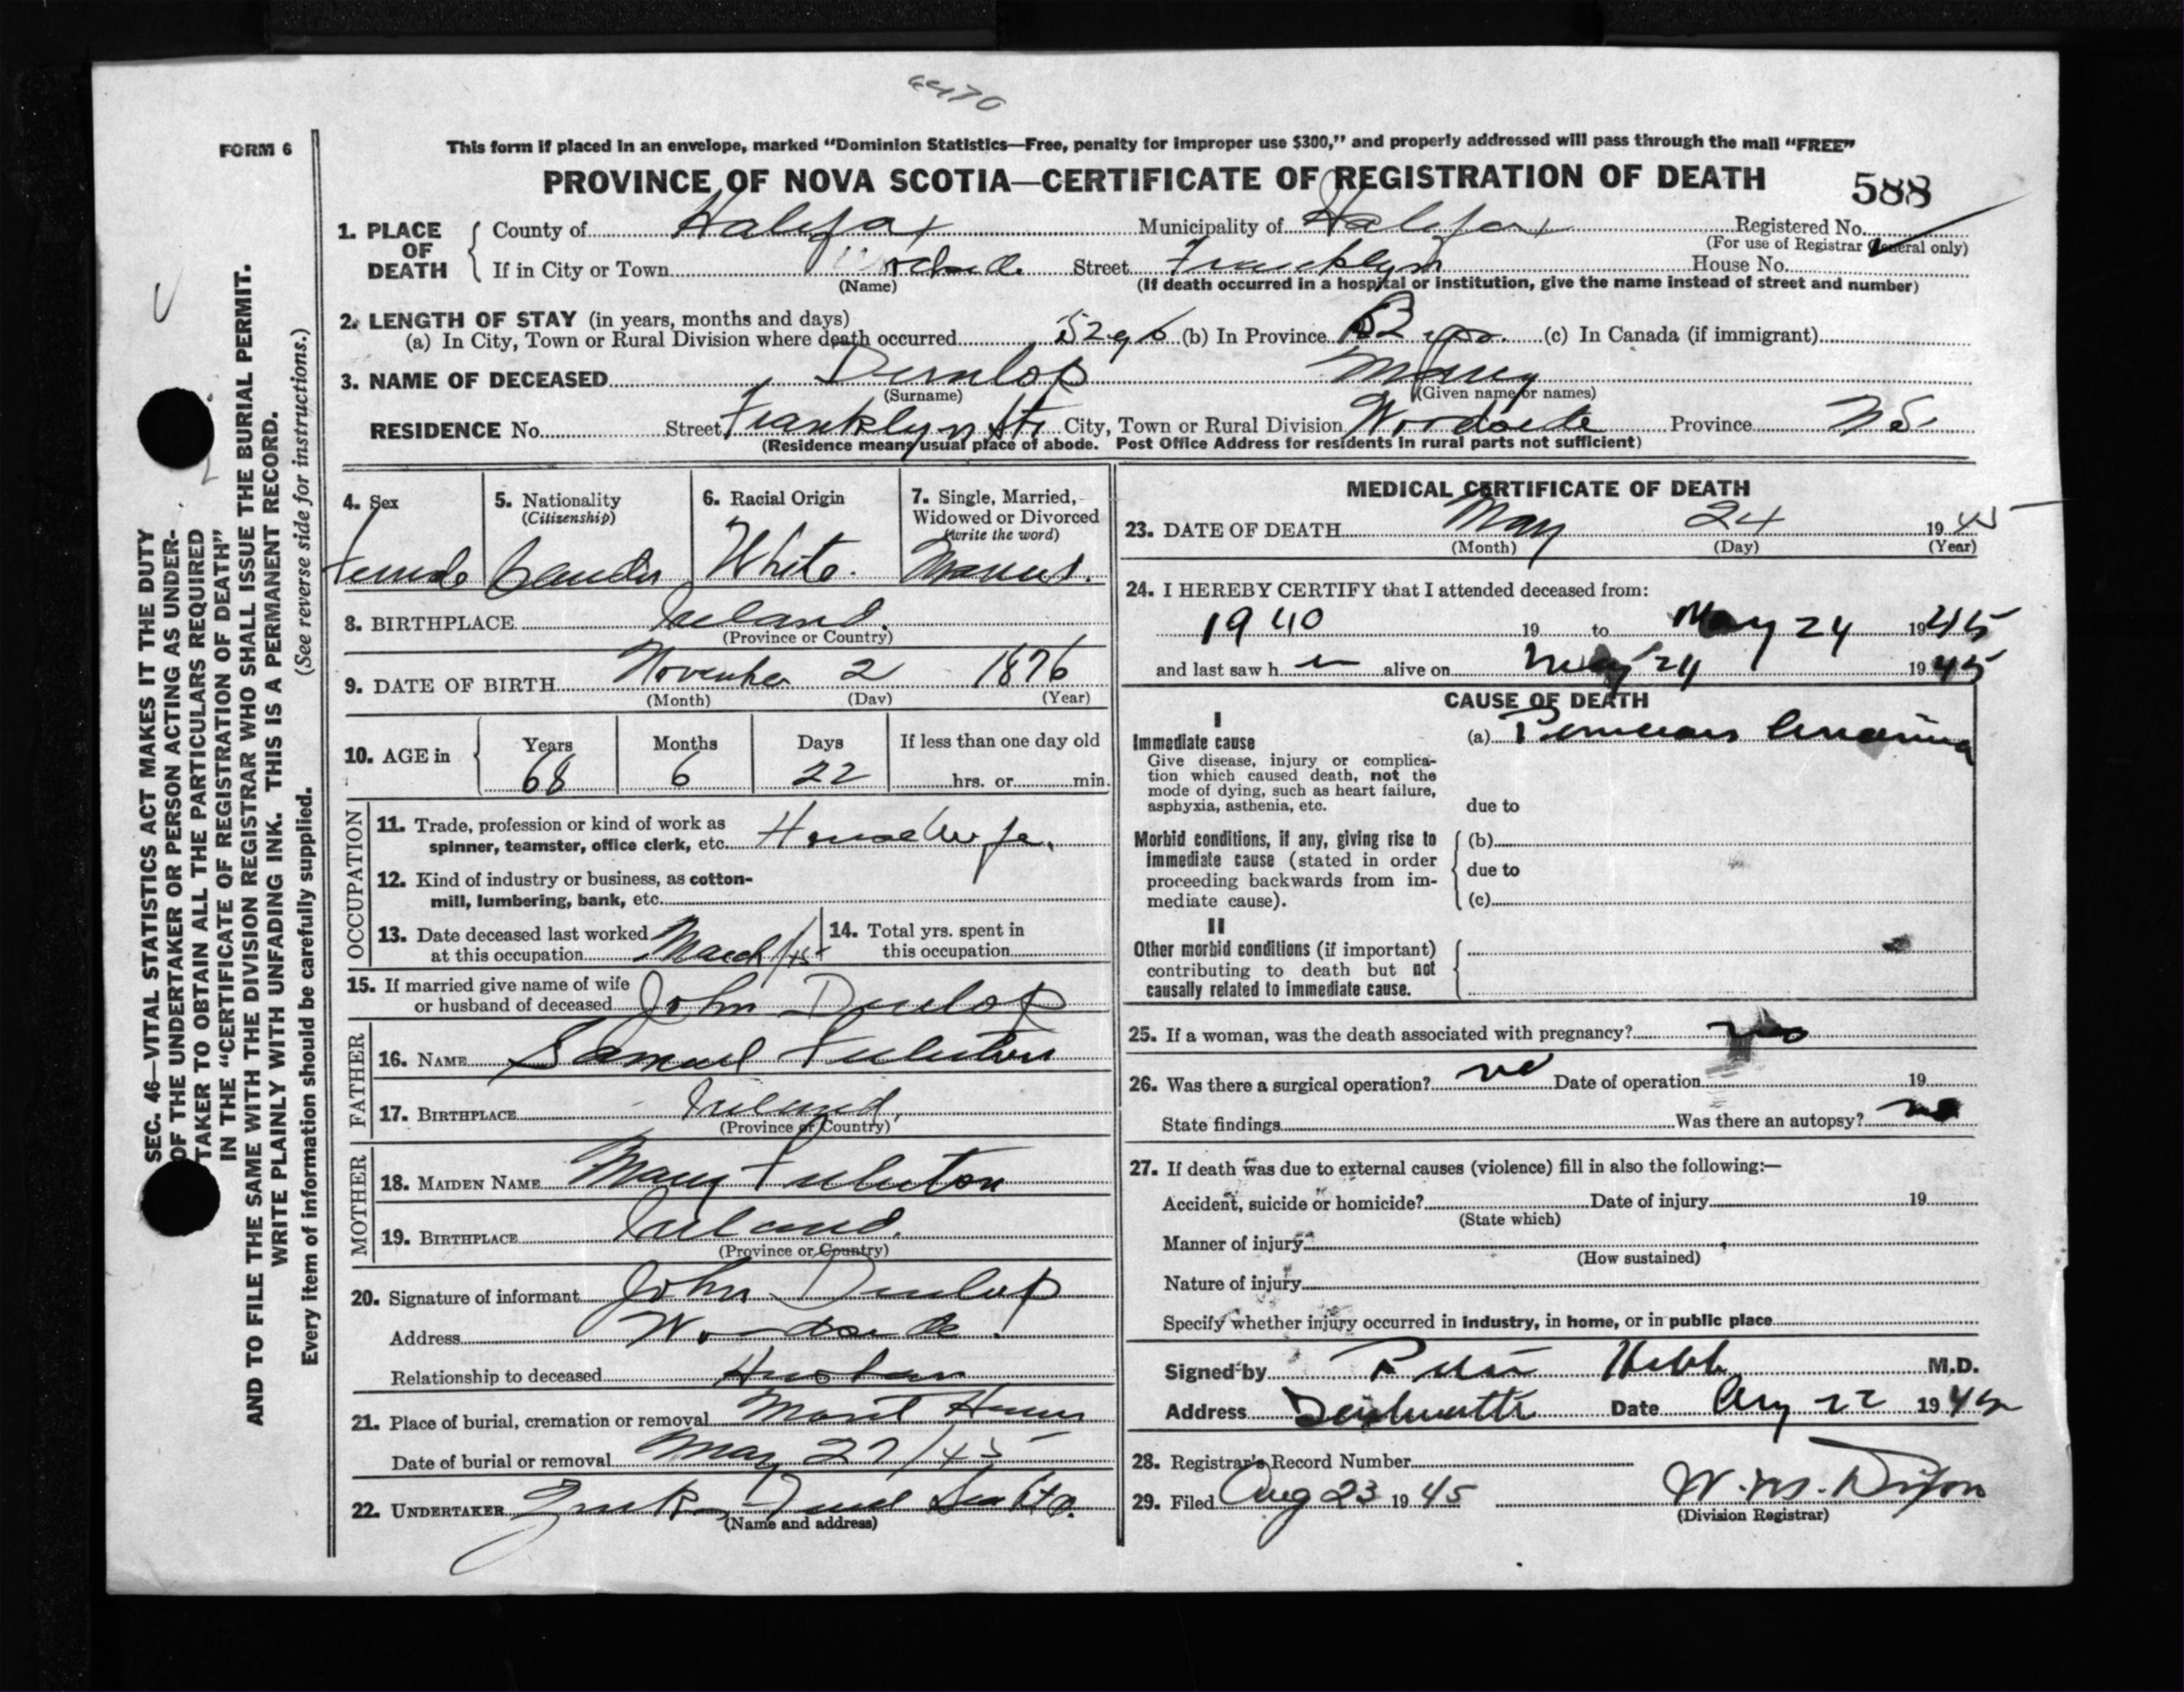 FORM 6
This form if placed in an envelope, marked "Dominion Statistics—Free, penalty for improper use $300," and properly addressed will pass through the mail "FREE"
PROVINCE OF NOVA SCOTIA—CERTIFICATE OF REGISTRATION OF DEATH
588
1. PLACE OF DEATH
County of Halifax Municipality of Halifax Registered No.
(For use of Registrar General only)
If in City or Town Woodside Street Franklyn House No.
(Name) (If death occurred in a hospital or institution, give the name instead of street and number)
2. LENGTH OF STAY (in years, months and days)
(a) In City, Town or Rural Division where death occurred (b) In Province 52 yrs. (c) In Canada (if immigrant)
3. NAME OF DECEASED Dunlop Mary
(Surname) (Given name or names)
RESIDENCE No. Street Franklyn St. City, Town or Rural Division Woodside Province NS
(Residence means usual place of abode. Post Office Address for residents in rural parts not sufficient)
4. Sex
Female
5. Nationality
(Citizenship)
6. Racial Origin
White.
7. Single, Married,
Widowed or Divorced
(write the word)
8. BIRTHPLACE Ireland.
(Province or Country)
9. DATE OF BIRTH November 2 1876
(Month) (Day) (Year)
10. AGE in Years Months Days If less than one day old
68 6 22 hrs. or min.
OCCUPATION
11. Trade, profession or kind of work as
spinner, teamster, office clerk, etc. Housewife.
12. Kind of industry or business, as cotton-
mill, lumbering, bank, etc.
13. Date deceased last worked
at this occupation March/45
14. Total yrs. spent in
this occupation
15. If married give name of wife
or husband of deceased John Dunlop
FATHER
16. NAME Samuel
17. BIRTHPLACE Ireland,
(Province or Country)
MOTHER
18. MAIDEN NAME Mary
19. BIRTHPLACE Ireland.
(Province or Country)
20. Signature of informant John Dunlop
Address Woodside.
Relationship to deceased Husban
21. Place of burial, cremation or removal
Date of burial or removal May 27/45
22. UNDERTAKER
(Name and address)
MEDICAL CERTIFICATE OF DEATH
23. DATE OF DEATH May 24 1945
(Month) (Day) (Year)
24. I HEREBY CERTIFY that I attended deceased from:
1940 19 to May 24 1945
and last saw h alive on May 24 1945
CAUSE OF DEATH
I
Immediate cause
Give disease, injury or complica-
tion which caused death, not the
mode of dying, such as heart failure,
asphyxia, asthenia, etc.
(a) Pernicious Anaemia
due to
Morbid conditions, if any, giving rise to
immediate cause (stated in order
proceeding backwards from im-
mediate cause).
(b)
due to
(c)
II
Other morbid conditions (if important)
contributing to death but not
causally related to immediate cause.
25. If a woman, was the death associated with pregnancy? no
26. Was there a surgical operation? no Date of operation 19
State findings Was there an autopsy? no
27. If death was due to external causes (violence) fill in also the following:—
Accident, suicide or homicide? Date of injury 19
(State which)
Manner of injury
(How sustained)
Nature of injury
Specify whether injury occurred in industry, in home, or in public place
Signed by Hebb M.D.
Address Date Aug 22 1945
28. Registrar's Record Number
29. Filed Aug 23 1945 W. M. Dixon
(Division Registrar)
SEC. 46—VITAL STATISTICS ACT MAKES IT THE DUTY
OF THE UNDERTAKER OR PERSON ACTING AS UNDER-
TAKER TO OBTAIN ALL THE PARTICULARS REQUIRED
IN THE "CERTIFICATE OF REGISTRATION OF DEATH"
AND TO FILE THE SAME WITH THE DIVISION REGISTRAR WHO SHALL ISSUE THE BURIAL PERMIT.
WRITE PLAINLY WITH UNFADING INK. THIS IS A PERMANENT RECORD.
Every item of information should be carefully supplied. (See reverse side for instructions.)